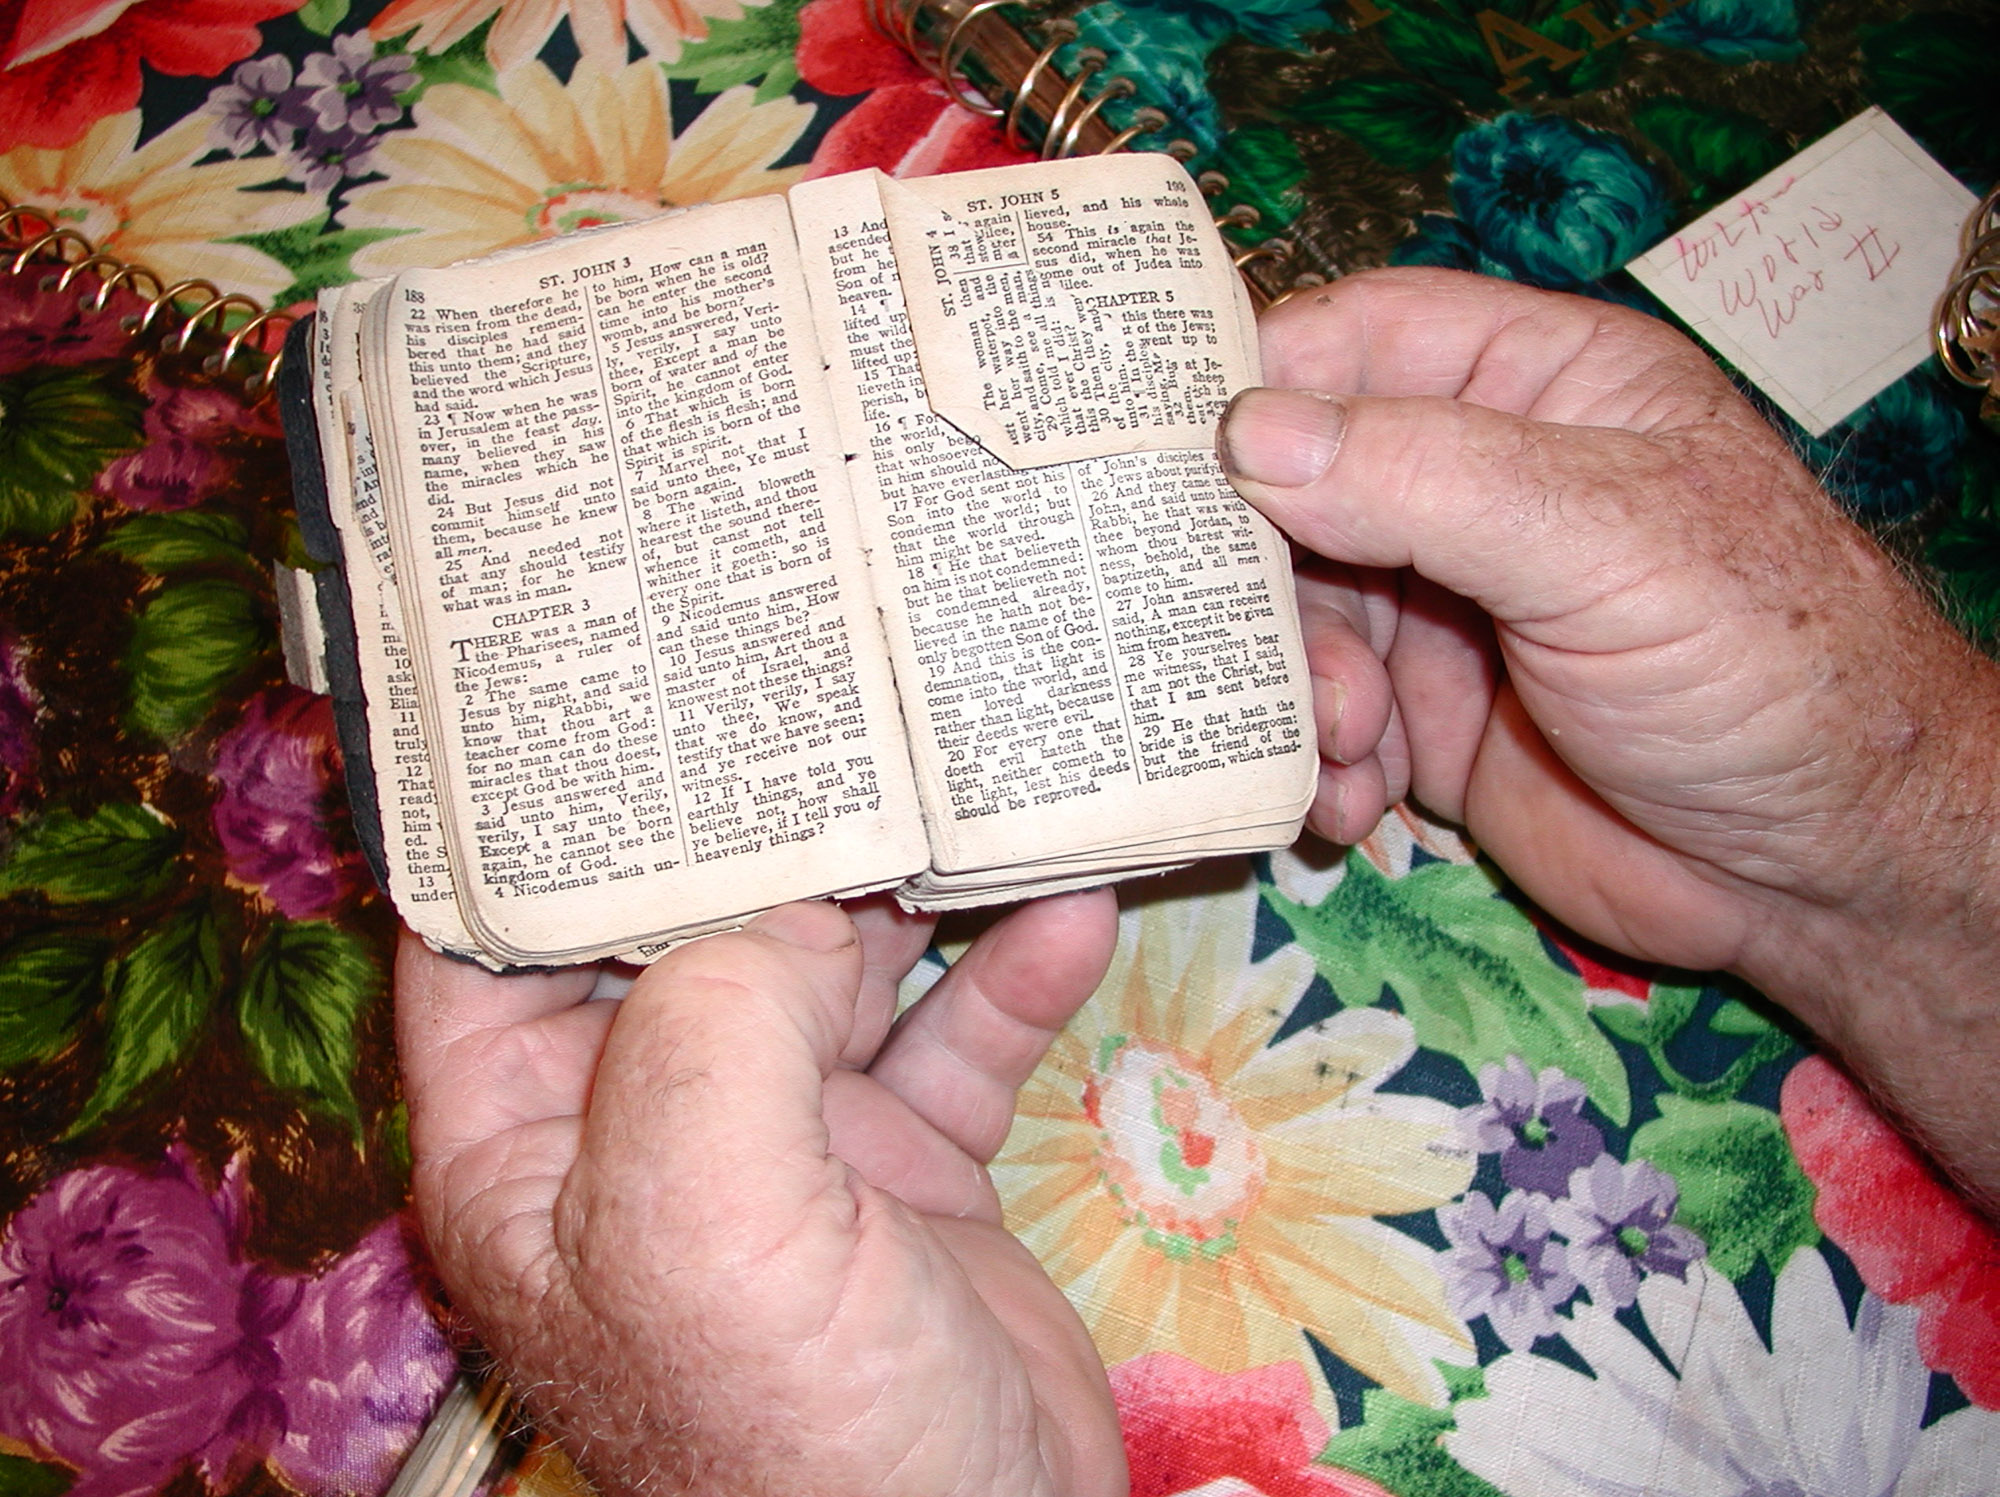 188
ST. JOHN 3
22 When therefore he
was risen from the dead,
his disciples remem-
bered that he had said
this unto them; and they
believed the Scripture,
and the word which Jesus
had said.
23 ¶ Now when he was
in Jerusalem at the pass-
over, in the feast day,
many believed in his
name, when they saw
the miracles which he
did.
24 But Jesus did not
commit himself unto
them, because he knew
all men.
25 And needed not
that any should testify
of man; for he knew
what was in man.
CHAPTER 3
THERE was a man of
the Pharisees, named
Nicodemus, a ruler of
the Jews:
2 The same came to
Jesus by night, and said
unto him, Rabbi, we
know that thou art a
teacher come from God:
for no man can do these
miracles that thou doest,
except God be with him.
3 Jesus answered and
said unto him, Verily,
verily, I say unto thee,
Except a man be born
again, he cannot see the
kingdom of God.
4 Nicodemus saith un-
to him, How can a man
be born when he is old?
can he enter the second
time into his mother's
womb, and be born?
5 Jesus answered, Veri-
ly, verily, I say unto
thee, Except a man be
born of water and of the
Spirit, he cannot enter
into the kingdom of God.
6 That which is born
of the flesh is flesh; and
that which is born of the
Spirit is spirit.
7 Marvel not that I
said unto thee, Ye must
be born again.
8 The wind bloweth
where it listeth, and thou
hearest the sound there-
of, but canst not tell
whence it cometh, and
whither it goeth: so is
every one that is born of
the Spirit.
9 Nicodemus answered
and said unto him, How
can these things be?
10 Jesus answered and
said unto him, Art thou a
master of Israel, and
knowest not these things?
11 Verily, verily, I say
unto thee, We speak
that we do know, and
testify that we have seen;
and ye receive not our
witness.
12 If I have told you
earthly things, and ye
believe not, how shall
ye believe, if I tell you of
heavenly things?
13 And
ascended
but he t
from he
Son of m
heaven.
14 ¶
lifted up
the wild
must the
lifted up:
15 That
lieveth in
perish, b
life.
16 ¶ For
the world,
his only bego
that whosoever
in him should no
but have everlasting
17 For God sent not his
Son into the world to
condemn the world; but
that the world through
him might be saved.
18 ¶ He that believeth
on him is not condemned:
but he that believeth not
is condemned already,
because he hath not be-
lieved in the name of the
only begotten Son of God.
19 And this is the con-
demnation, that light is
come into the world, and
men loved darkness
rather than light, because
their deeds were evil.
20 For every one that
doeth evil hateth the
light, neither cometh to
the light, lest his deeds
should be reproved.
of John's disciples a
the Jews about purifyi
26 And they came un
John, and said unto him,
Rabbi, he that was with
thee beyond Jordan, to
whom thou barest wit-
ness, behold, the same
baptizeth, and all men
come to him.
27 John answered and
said, A man can receive
nothing, except it be given
him from heaven.
28 Ye yourselves bear
me witness, that I said,
I am not the Christ, but
that I am sent before
him.
29 He that hath the
bride is the bridegroom:
but the friend of the
bridegroom, which stand-
ST. JOHN 5
193
lieved, and his whole
house.
54 This is again the
second miracle that Je-
sus did, when he was
come out of Judea into
lilee.
CHAPTER 5
this there was
of the Jews;
went up to
at Je-
sheep
ich is
ST. JOHN 4
The woman then
left her waterpot, and
went her way into the
city, and saith to the men,
29 Come, see a man,
which told me all things
that ever I did: is
this the Christ?
30 Then they went
of the city, and
unto him.
31 ¶ In the
his disciples
saying, Ma
32 But
them,
eat
World
War II
him
10
aske
then
Elia
11
and
truly
resto
12
That
ready
not,
him
ed.
the S
them.
13
under